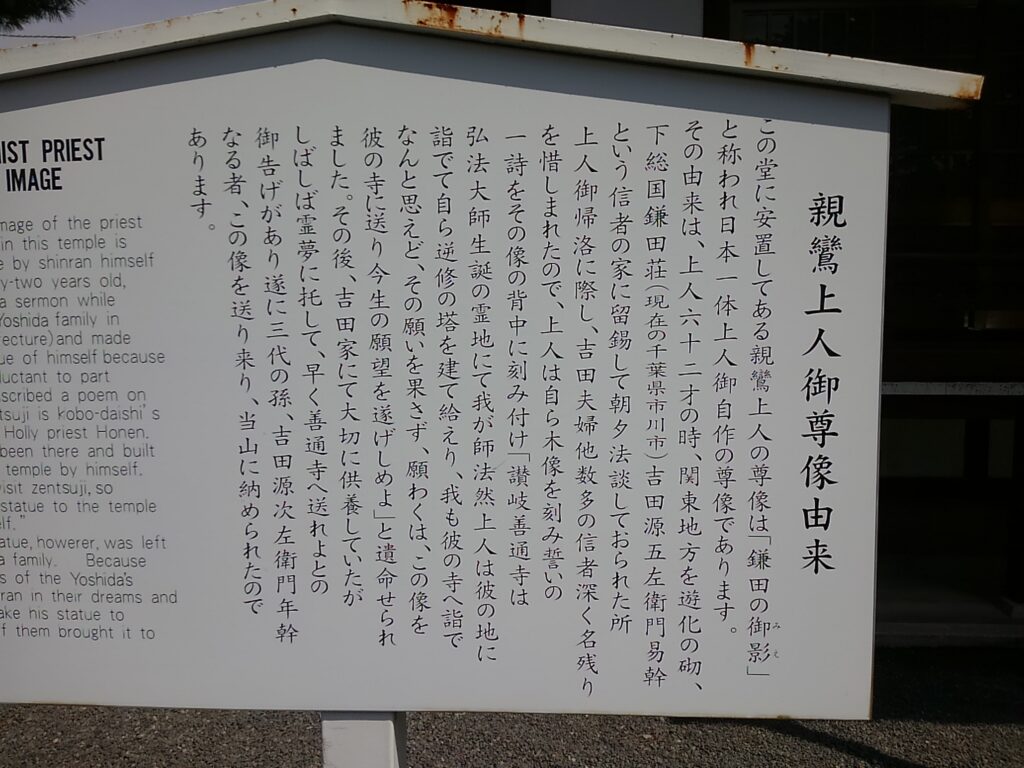 親鸞上人御尊像由来
この堂に安置してある親鸞上人の尊像は「鎌田の御影」
みえ
と称われ日本一体上人御自作の尊像であります。
その由来は、上人六十二才の時、関東地方を遊化の砌、
下総国鎌田荘(現在の千葉県市川市)吉田源五左衛門易幹
という信者の家に留錫して朝夕法談しておられた所
上人御帰洛に際し、吉田夫婦他数多の信者深く名残り
を惜しまれたので、上人は自ら木像を刻み誓いの
一詩をその像の背中に刻み付け「讃岐善通寺は
弘法大師生誕の霊地にて我が師法然上人は彼の地に
詣でて自ら逆修の塔を建て給えり、我も彼の寺へ詣で
なんと思えど、その願いを果さず、願わくは、この像を
彼の寺に送り今生の願望を遂げしめよ」と遺命せられ
ました。その後、吉田家にて大切に供養していたが
しばしば霊夢に托して、早く善通寺へ送れよとの
御告げがあり遂に三代の孫、吉田源次左衛門年幹
なる者、この像を送り来り、当山に納められたので
あります。
IST PRIEST
IMAGE
mage of the priest
in this temple is
e by shinran himself
ty-two years old,
a sermon while
Yoshida family in
ecture)and made
ue of himself because
luctant to part
scribed a poem on
tsuji is kobo-daishi's
Holly priest Honen.
been there and built
temple by himself.
visit zentsuji, so
statue to the temple
elf."
atue, howerer, was left
a family. Because
s of the Yoshida's
ran in their dreams and
ake his statue to
f them brought it to